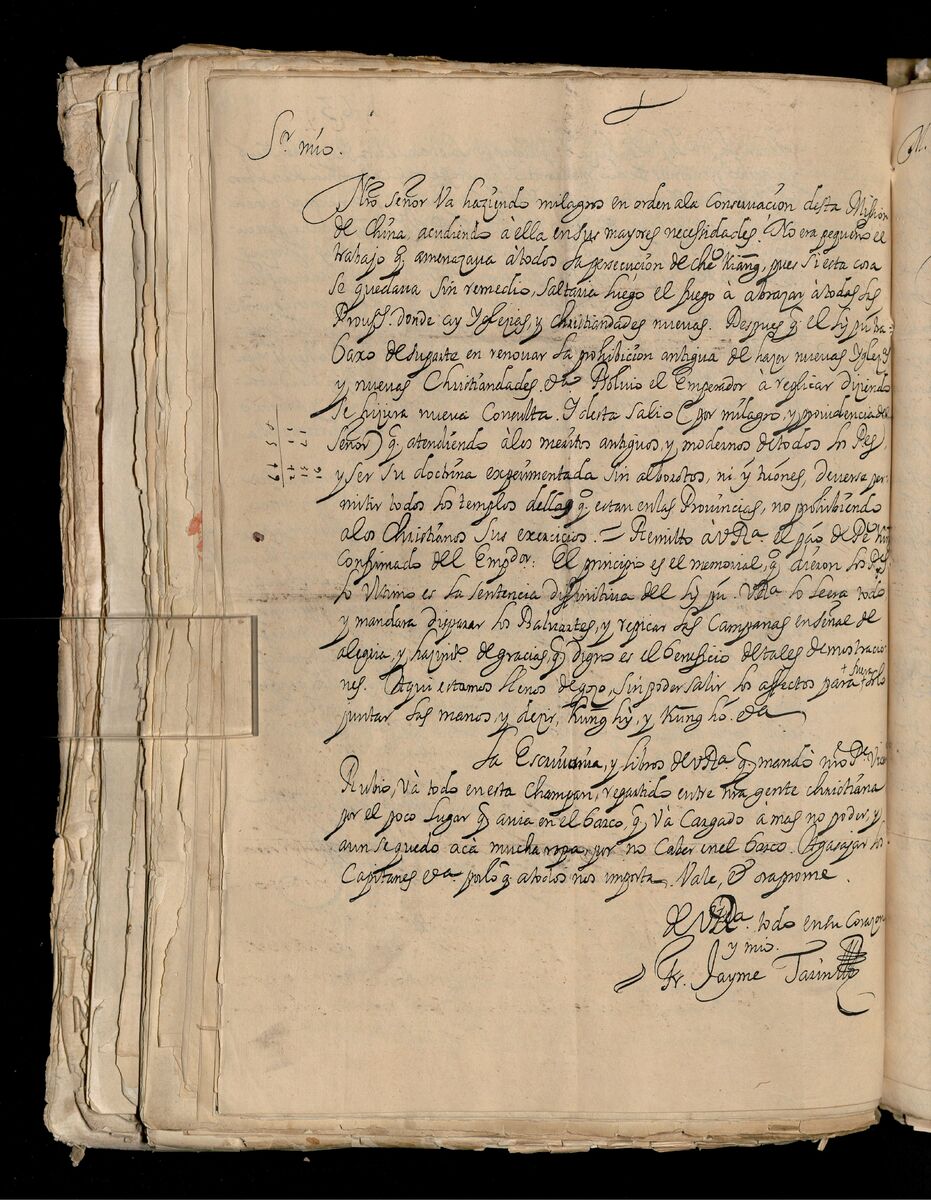 Sr. mio.
Nro señor va haziendo milagros en orden a la Conseruacion desta Mission
de China, acudiendo à ella en sus mayores necessidades. No era pequeño el
trabajo q. amenazaua à todos la persecucion de Che Kiang, pues si esta cosa
se quedaua sin remedio, saltaria luego el fuego à abrazar à todas las
Prouss. donde ay Yglesias, y christiandades nuevas. Despues q. el li pu tra-
baxo de su parte en renouar la prohibicion antigua de hazer nuevas Yglesˢ
y nuevas Christiandades etᵃ Boluio el Emperador à replicar diziendo
se hiziera nueva Consulta. Y desta salio (por milagro, y prouidencia del
Señor) q. atendiendo à los meritos antiguos, y modernos de todos los Pes,
y ser su doctrina experimentada sin alborotos, ni y tiones, deuerse per-
mitir todos los templos dellos q. estan en las Prouincias, no prohibiendo
a los Christianos sus exercicios. = Remitto à VRᵃ el pao de Pe Kin
Confirmado del Empdor. El principio es el memorial, q. dieron los Pes.
lo Vltimo es la sentencia difinitiua del li pu. VRᵃ lo leera todo
y mandara disparar los Baluartes, y repicar las Campanas en señal de
alegria, y hazimto. de gracias, q. digno es el beneficio de tales demostracio-
nes. Aqui estamos llenos de gozo, sin poder salir los affectos para fuera + solo
juntar las manos, y dezir, Kung hy, y Kung ho. etᵃ
La Escriuania, y libros de VRᵃ q. mandò nro Pe. Vic
Rubio, và todo en esta Champan, repartido entre nra gente christiana
por el poco lugar q. auia en el barco, q. và Cargado à mas no poder, y
aun se quedo acà mucha ropa, por no Caber en el barco. Agasajar los
Capitanes etᵃ. por lo q. a todos nos importa. Vale, & ora pro me.
de VRᵃ. todo en su Corazon
y mio.
Fr. Jayme Tarin
17
11